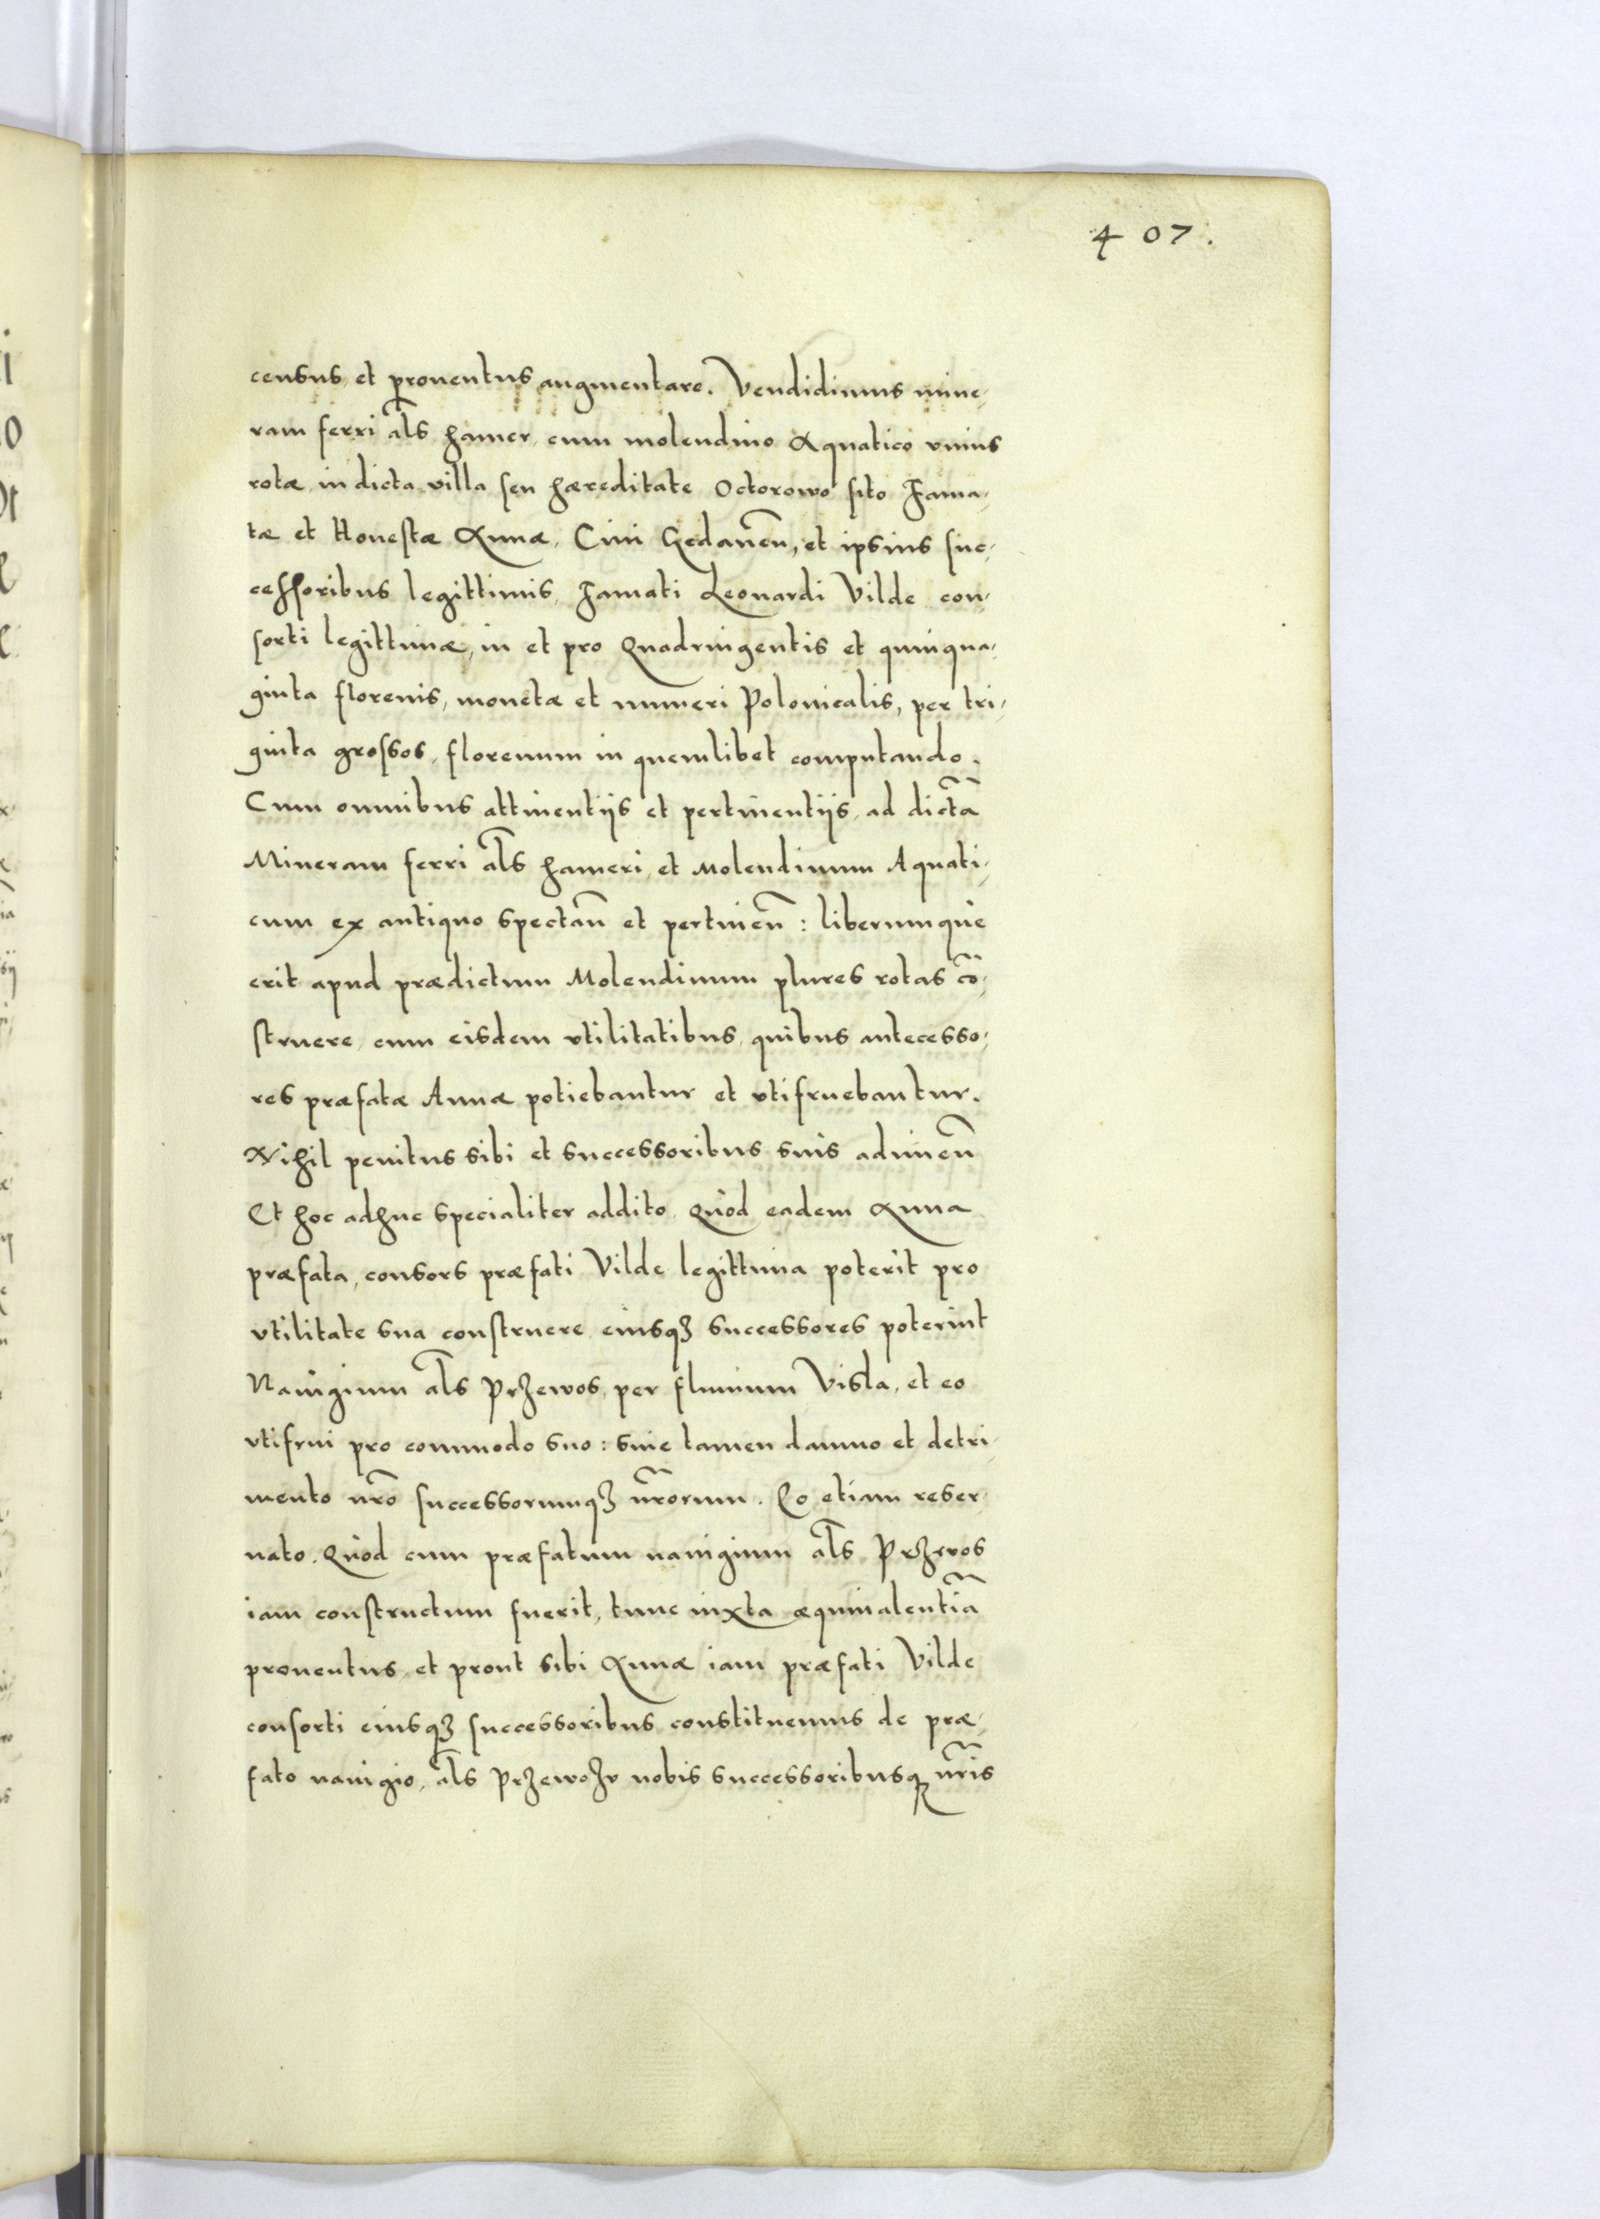 407.
census et prouentus augmentare. Vendidimus mine,
ram ferri als̄ hamer cum molendino Aquatico vnius
rotæ in dicta villa seu hæreditate Octorowo sito Fama,
tæ et Honestæ Annæ, Ciui Gedaneñ, et ipsius suc,
cessoribus legittimis, Famati Leonardi Vilde con,
sorti legittimæ, in et pro Quadringentis et quinqua,
ginta florenis, monetæ et numeri Polonicalis, per tri,
ginta grossos, florenum in quemlibet computando.
Cum omnibus attinentijs et pertinentijs, ad dictā
Mineram ferri als̄ hameri et Molendinum Aquati,
cum ex antiquo spectañ et pertineñ: liberumque
erit apud prædictum Molendinum plures rotas cō,
struere, cum eisdem vtilitatibus, quibus antecesso,
res præfatæ Annæ potiebantur et vtifruebantur.
Nihil penitus sibi et successoribus suis adimeñ
Et hoc adhuc specialiter addito, Quòd eadem Anna
præfata, consors præfati Vilde legittima poterit pro
vtilitate sua construere, eiusqȝ successores poterint
Nauigium als̄ Przewos, per fluuium Visla, et eo
vtifrui pro commodo suo: sine tamen damno et detri,
mento nr̄o successorumqȝ nr̄orum. Eo etiam reser,
uato. Quòd cum præfatum nauigium als̄ Przeros
iam constructum fuerit, tunc iuxta æquiualentiā
prouentus, et prout sibi Annæ iam præfati Vilde
consorti eiusqȝ successoribus constituemus de præ,
fato nauigio, als̄ Przewozu nobis successoribusq nr̄is